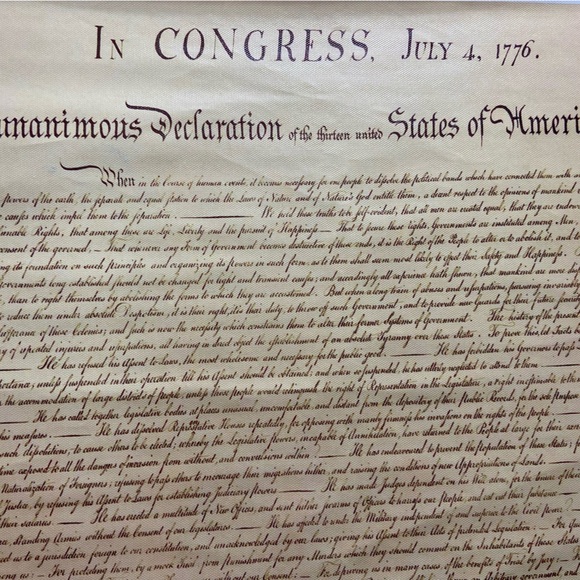 In CONGRESS, July 4, 1776.
unanimous Declaration of the thirteen united States of Ameri
When in the Course of human events, it becomes necessary for one people to dissolve the political bands which have connected them with
powers of the earth, the separate and equal station to which the Laws of Nature and of Nature's God entitle them, a decent respect to the opinions of mankind
causes which impel them to the separation. — We hold these truths to be self-evident, that all men are created equal, that they are endowed
Rights, that among these are Life, Liberty and the pursuit of Happiness — That to secure these rights, Governments are instituted among Men,
consent of the governed, — That whenever any Form of Government becomes destructive of these ends, it is the Right of the People to alter or to abolish it, and to
its foundation on such principles and organizing its powers in such form, as to them shall seem most likely to effect their Safety and Happiness.
Governments long established should not be changed for light and transient causes; and accordingly all experience hath shewn, that mankind are more
than to right themselves by abolishing the forms to which they are accustomed. But when a long train of abuses and usurpations, pursuing invariably
reduce them under absolute Despotism, it is their right, it is their duty, to throw off such Government, and to provide new Guards for their future
sufferance of these Colonies; and such is now the necessity which constrains them to alter their former Systems of Government. The history of the present
of repeated injuries and usurpations, all having in direct object the establishment of an absolute Tyranny over these States. To prove this, let Facts
He has refused his Assent to Laws, the most wholesome and necessary for the public good. — He has forbidden his Governors to pass
unless suspended in their operation till his Assent should be obtained; and when so suspended, he has utterly neglected to attend to them. —
the accommodation of large districts of people, unless those people would relinquish the right of Representation in the Legislature, a right inestimable to
— He has called together legislative bodies at places unusual, uncomfortable, and distant from the depository of their public Records, for the sole purpose
his measures. — He has dissolved Representative Houses repeatedly, for opposing with manly firmness his invasions on the rights of the people. —
such dissolutions, to cause others to be elected; whereby the Legislative powers, incapable of Annihilation, have returned to the People at large for their
time exposed to all the dangers of invasion from without, and convulsions within. — He has endeavoured to prevent the population of these States;
Naturalization of Foreigners; refusing to pass others to encourage their migrations hither, and raising the conditions of new Appropriations of Lands. —
Justice, by refusing his Assent to Laws for establishing Judiciary powers. — He has made Judges dependent on his Will alone, for the tenure of
their salaries. — He has erected a multitude of New Offices, and sent hither swarms of Officers to harrass our people, and eat out their substance. —
Standing Armies without the Consent of our legislatures. — He has affected to render the Military independent of and superior to the Civil power.
us to a jurisdiction foreign to our constitution, and unacknowledged by our laws; giving his Assent to their Acts of pretended Legislation: — For
us: — For protecting them, by a mock Trial, from punishment for any Murders which they should commit on the Inhabitants of these States:
without our Consent: — For depriving us in many cases, of the benefits of Trial by Jury: